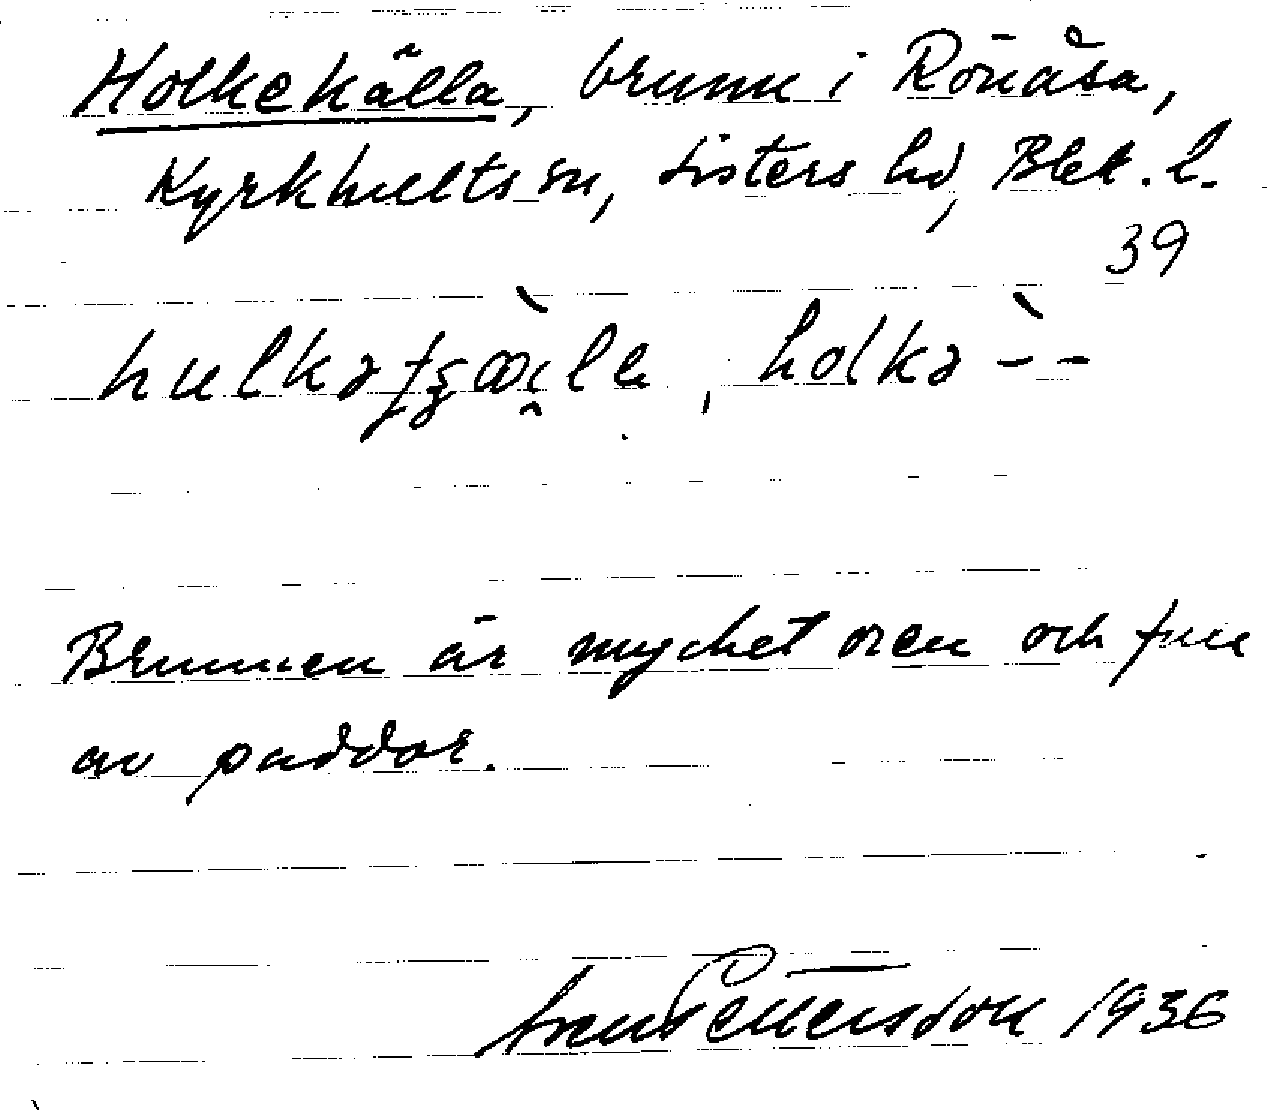 Holkekälla, brunn i Rönåsa,
Kyrkhults sn, Listers hd, Blek. l.
39
holkə - -
Brunnen är mycket oren och full
av paddor.
Sven Pettersson 1936